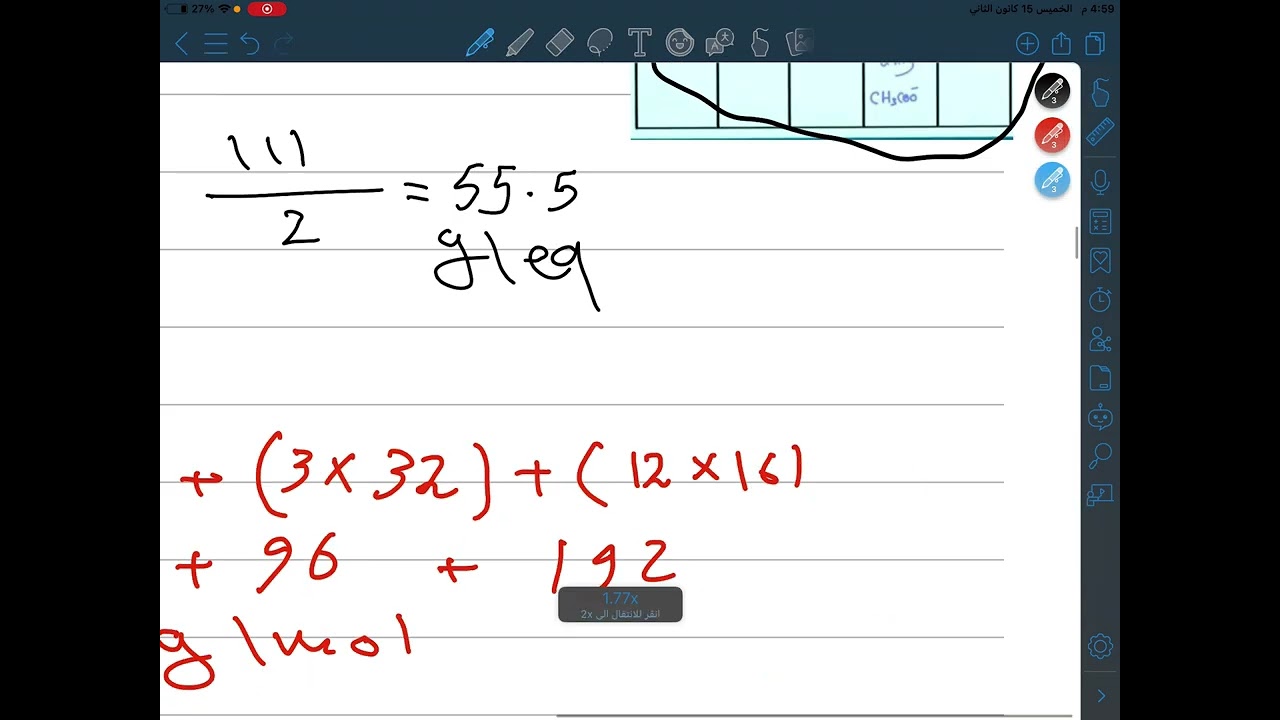 27%
4:59 م الخميس 15 كانون الثاني
CH3COO-
3
3
3
111
2
= 55.5
g\eq
+ (3 x 32) + (12 x 16)
+ 96 + 192
g \mol
1.77x
انقر للانتقال الى 2x